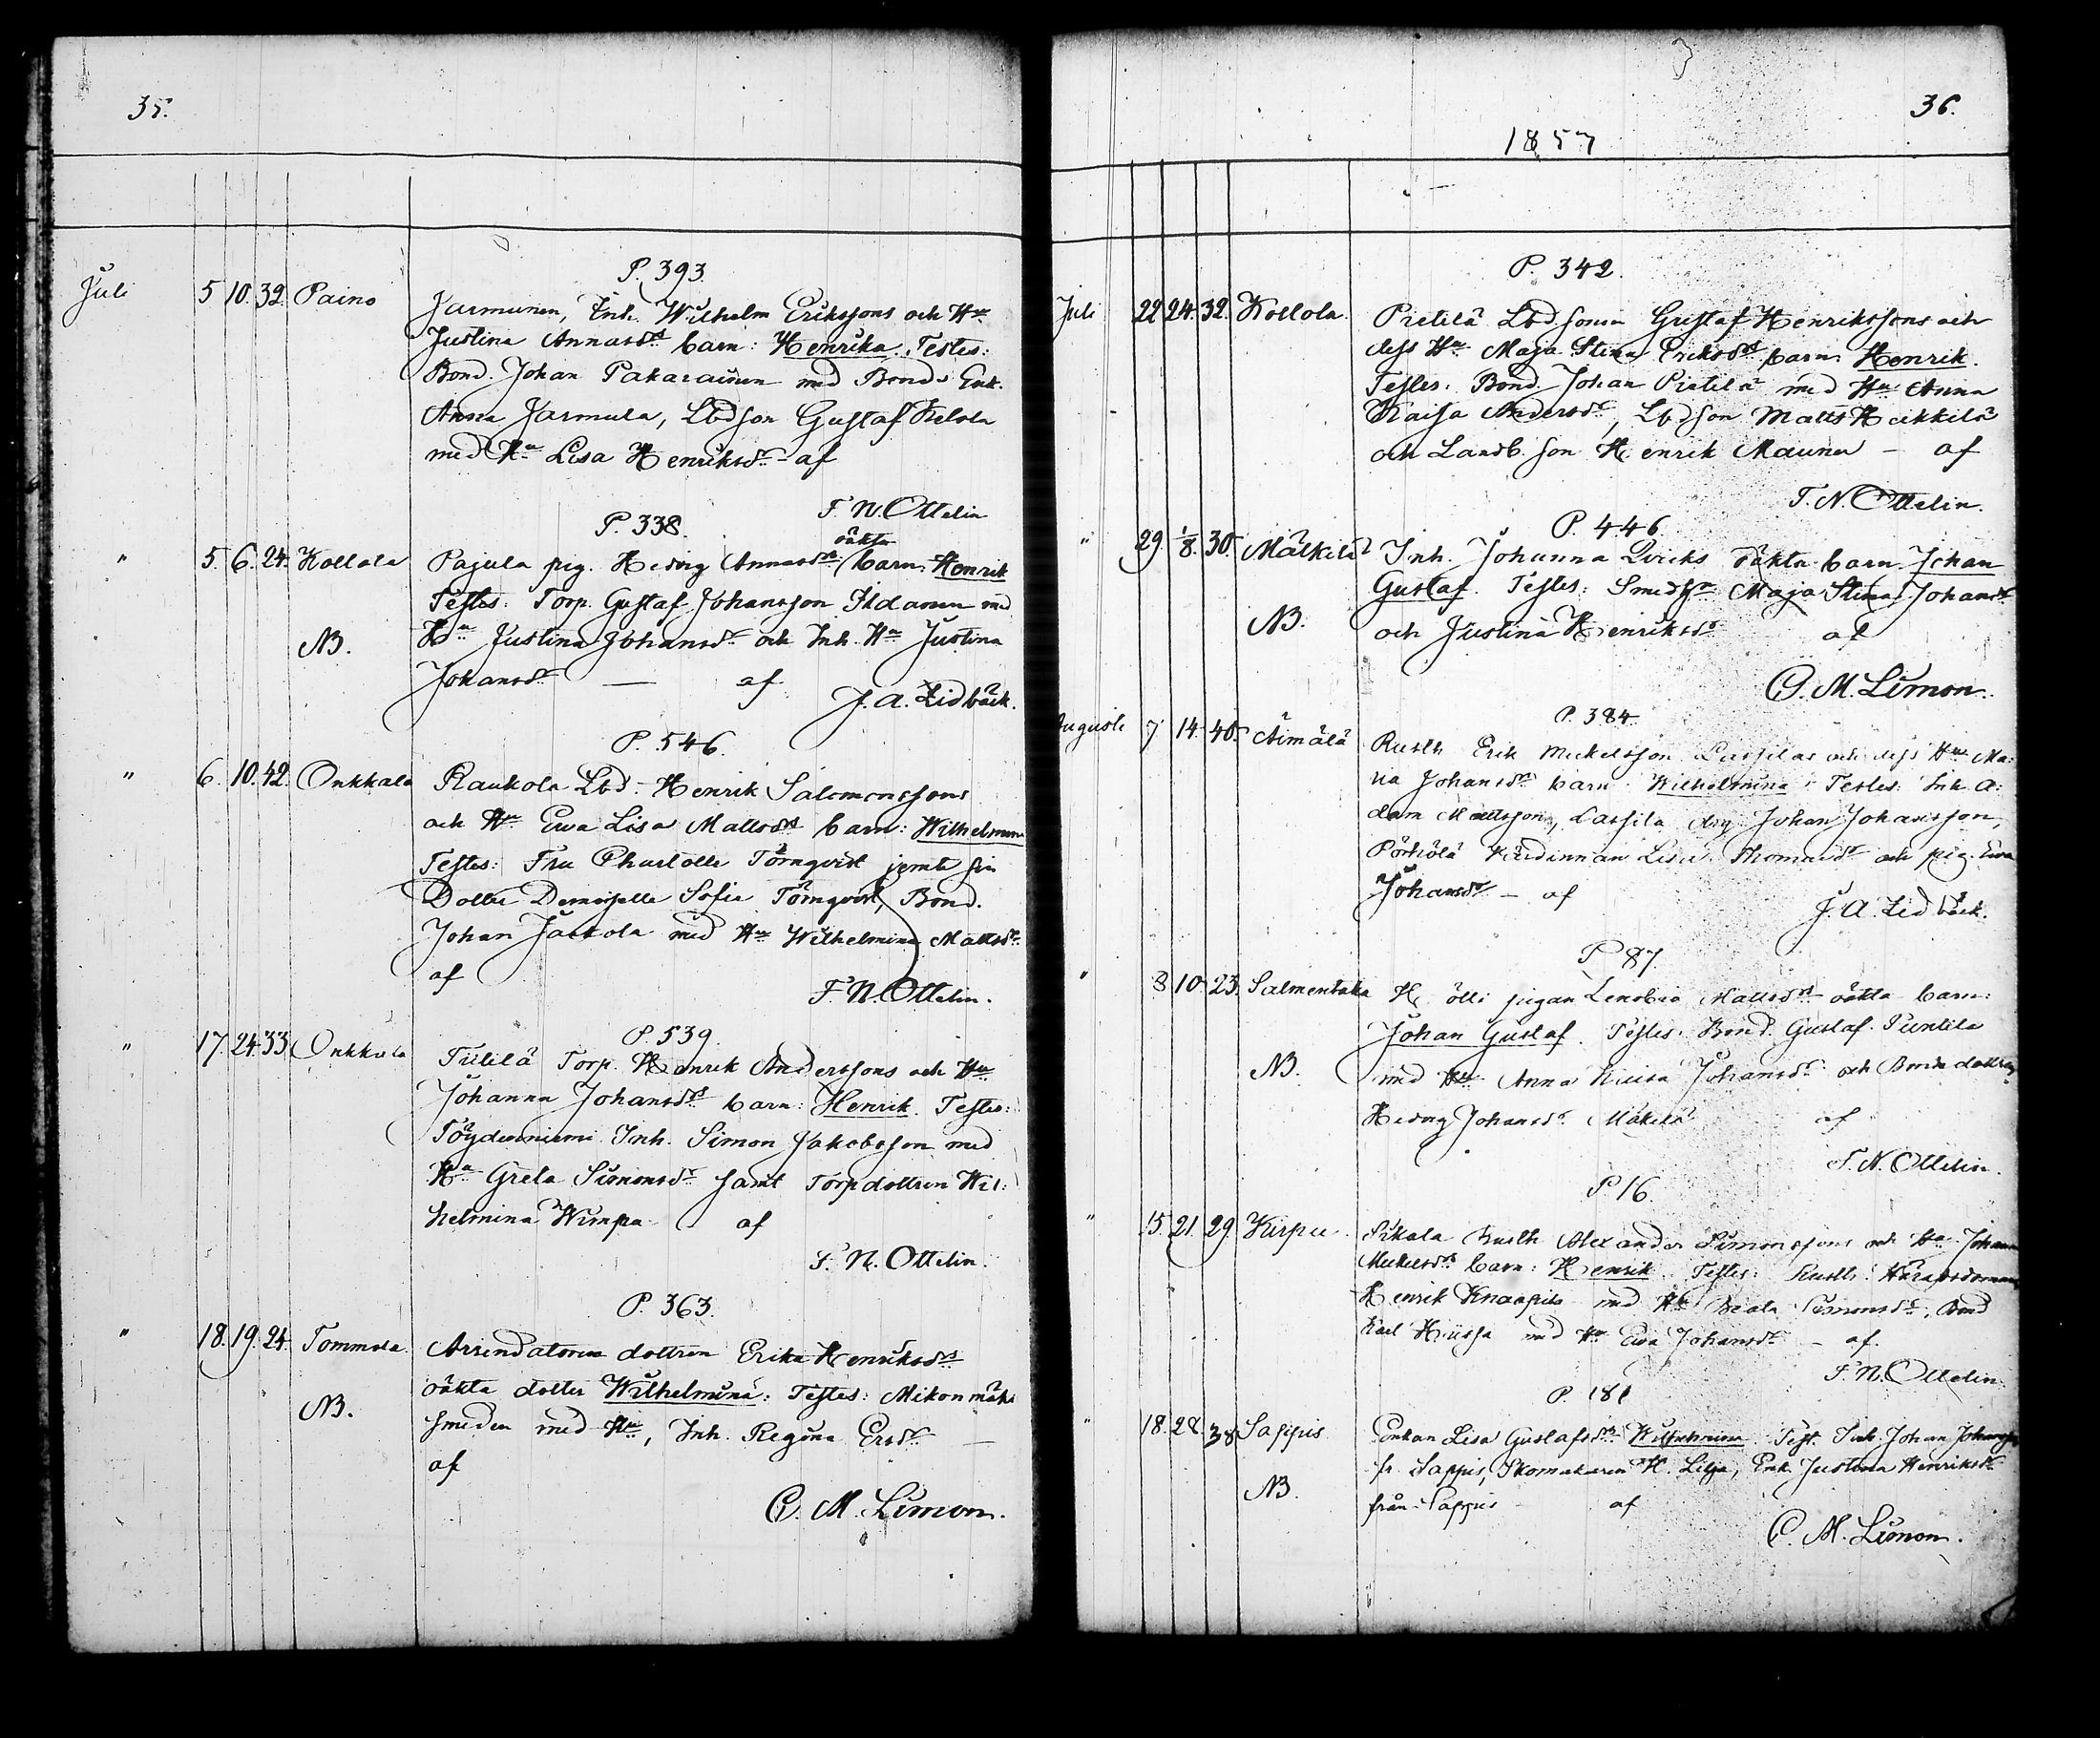 35.
P. 393.
Juli 5. 10. 32. Paino Jarmunen, Inh. Wilhelm Erikssons och Hu
Justina Annasdrs barn: Henrika. Testes:
Bond. Johan Pakarainen med Bonds Enk.
Anna Jarmula, Lbdson Gustaf Kelola
med Hu Lisa Henriksdr - af
F. N. Ottelin
P. 338.
oäkta
" 5. 6. 24. Kollola Pajula pig. Hedvig Annasdrs barn: Henrik
Testes: Torp. Gustaf Johansson med
NB. Hu Justina Johansdr och Inh. Hu Justina
Johansdr — af
J. A. Lidbäck.
P. 546.
" 6. 10. 42. Onkkala Raukola Lbd. Henrik Salomonssons
och Hu Ewa Lisa Mattsdrs barn: Wilhelmina
Testes: Fru Charlotte Törnqvist jemte sin
Dotter Demoiselle Sofia Törnqvist, Bond.
Johan Jaakola med Hu Wilhelmina Mattsdr
af
F. N. Ottelin.
P. 539.
" 17. 24. 33. Onkkala Tiitilä Torp. Henrik Anderssons och Hu
Johanna Johansdrs barn: Henrik. Testes:
Töydenniemi Inh. Simon Jakobsson med
Hu Greta Simonsdr samt Torpdottren Wil:
helmina Wimpa af
F. N. Ottelin.
P. 363.
" 18. 19. 24. Tommola Arrendatorn dottren Erika Henriksdrs
oäkta dotter Wilhelmina: Testes: Mikonmäki
NB. smeden med Hu, Inh. Regina Ersdr —
af
C. M. Limon.
36.
1857
P. 342.
Juli 22. 24. 32. Kollola. Pietilä Lbdsonen Gustaf Henrikssons och
dess Hu Maja Stina Eriksdrs barn Henrik.
Testes: Bond. Johan Pietilä med Hu Anna
Kaisa Andersdr, Lbdson Matts Heikkilä
och Landb. son Henrik Maunu - af
F. N. Ottelin.
P. 446.
" 29. 1/8. 30. Mälkilä Inh. Johanna Qvicks oäkta barn Johan
Gustaf. Testes: Smedshu Maja Stina Johansdr
NB. och Justina Henriksdr af
C. M. Limon.
P. 384.
Augusti 7. 14. 40. Äimälä Rusth. Erik Mickelsson Lassilas och dess Hu Ma:
ria Johansdrs barn Wilhelmina Testes: Inh. A:
dam Mattsson, Lassila drg Johan Johansson,
Pörhölä Värdinnan Lisa Thomasdr och pig. Ewa
Johansdr - af
J. A. Lidbäck.
P. 87.
" 8. 10. 23. Salmentaka Hölli pigan Lenobia Mattsdrs oäkta barn:
Johan Gustaf. Testes: Bond. Gustaf Puntila
NB. med Hu Anna Luisa Johansdr och Bondedottren
Hedvig Johansdr Mäkelä af
F. N. Ottelin.
P. 16.
" 15. 21. 29. Kirpu Pikala Rusth. Alexander Simonssons och Hu Johanna
Mickelsdrs barn: Henrik. Testes: Rusth. Häradsdomaren
Henrik Knaapila med Hu Beata Simonsdr, Bond
Karl Hiissa med Hu Ewa Johansdr - af.
F. N. Ottelin.
P. 181
" 18. 28. 38. Sappis Enkan Lisa Gustafsdrs Wilhelmina. Test. Inh. Johan Johansson
fr. Sappis, Skomakaren H. Lilja, Enk. Justina Henriksdr
NB. från Sappis af
C. M. Limon.